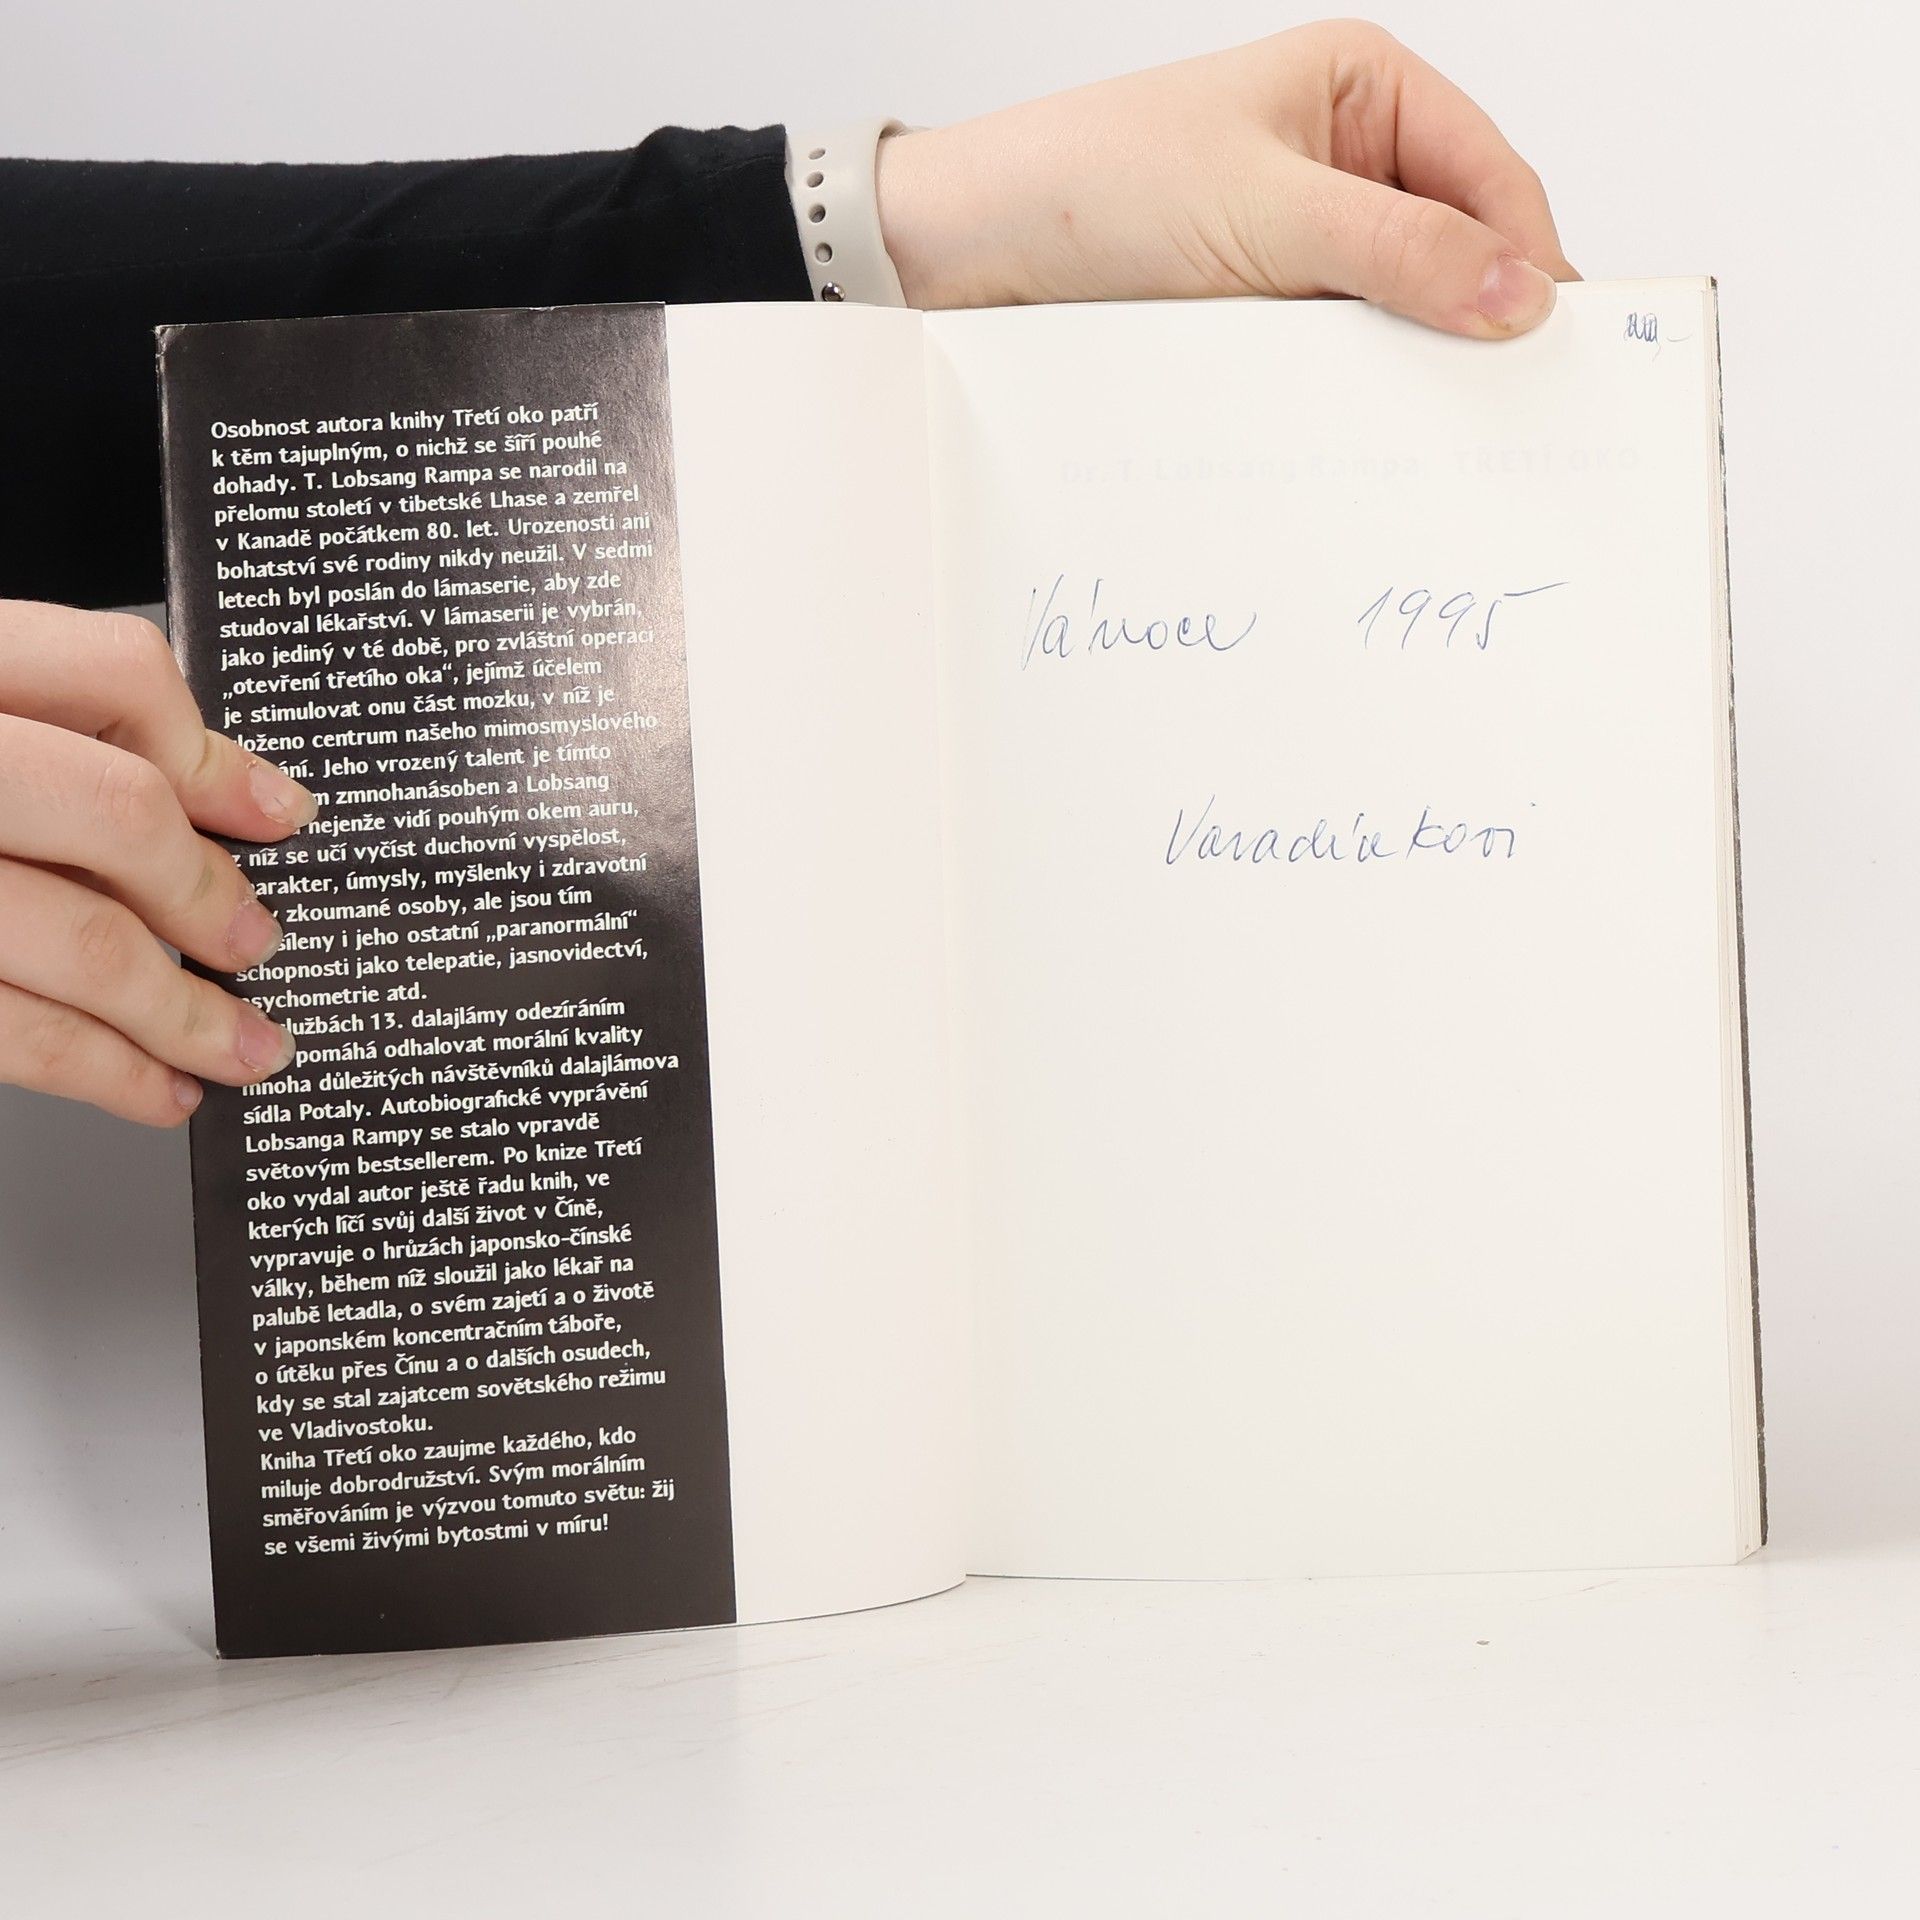 Osobnost autora knihy Třetí oko patří
k těm tajuplným, o nichž se šíří pouhé
dohady. T. Lobsang Rampa se narodil na
přelomu století v tibetské Lhase a zemřel
v Kanadě počátkem 80. let. Urozenosti ani
bohatství své rodiny nikdy neužil. V sedmi
letech byl poslán do lámaserie, aby zde
studoval lékařství. V lámaserii je vybrán,
jako jediný v té době, pro zvláštní operaci
„otevření třetího oka“, jejímž účelem
je stimulovat onu část mozku, v níž je
loženo centrum našeho mimosmyslového
ání. Jeho vrozený talent je tímto
m zmnohanásoben a Lobsang
nejenže vidí pouhým okem auru,
z níž se učí vyčíst duchovní vyspělost,
arakter, úmysly, myšlenky i zdravotní
zkoumané osoby, ale jsou tím
síleny i jeho ostatní „paranormální“
schopnosti jako telepatie, jasnovidectví,
psychometrie atd.
službách 13. dalajlámy odezíráním
pomáhá odhalovat morální kvality
mnoha důležitých návštěvníků dalajlámova
sídla Potaly. Autobiografické vyprávění
Lobsanga Rampy se stalo vpravdě
světovým bestsellerem. Po knize Třetí
oko vydal autor ještě řadu knih, ve
kterých líčí svůj další život v Číně,
vypravuje o hrůzách japonsko-čínské
války, během níž sloužil jako lékař na
palubě letadla, o svém zajetí a o životě
v japonském koncentračním táboře,
o útěku přes Čínu a o dalších osudech,
kdy se stal zajatcem sovětského režimu
ve Vladivostoku.
Kniha Třetí oko zaujme každého, kdo
miluje dobrodružství. Svým morálním
směřováním je výzvou tomuto světu: žij
se všemi živými bytostmi v míru!
Dr. T. Lobsang Rampa TŘETÍ OKO
Vánoce 1995